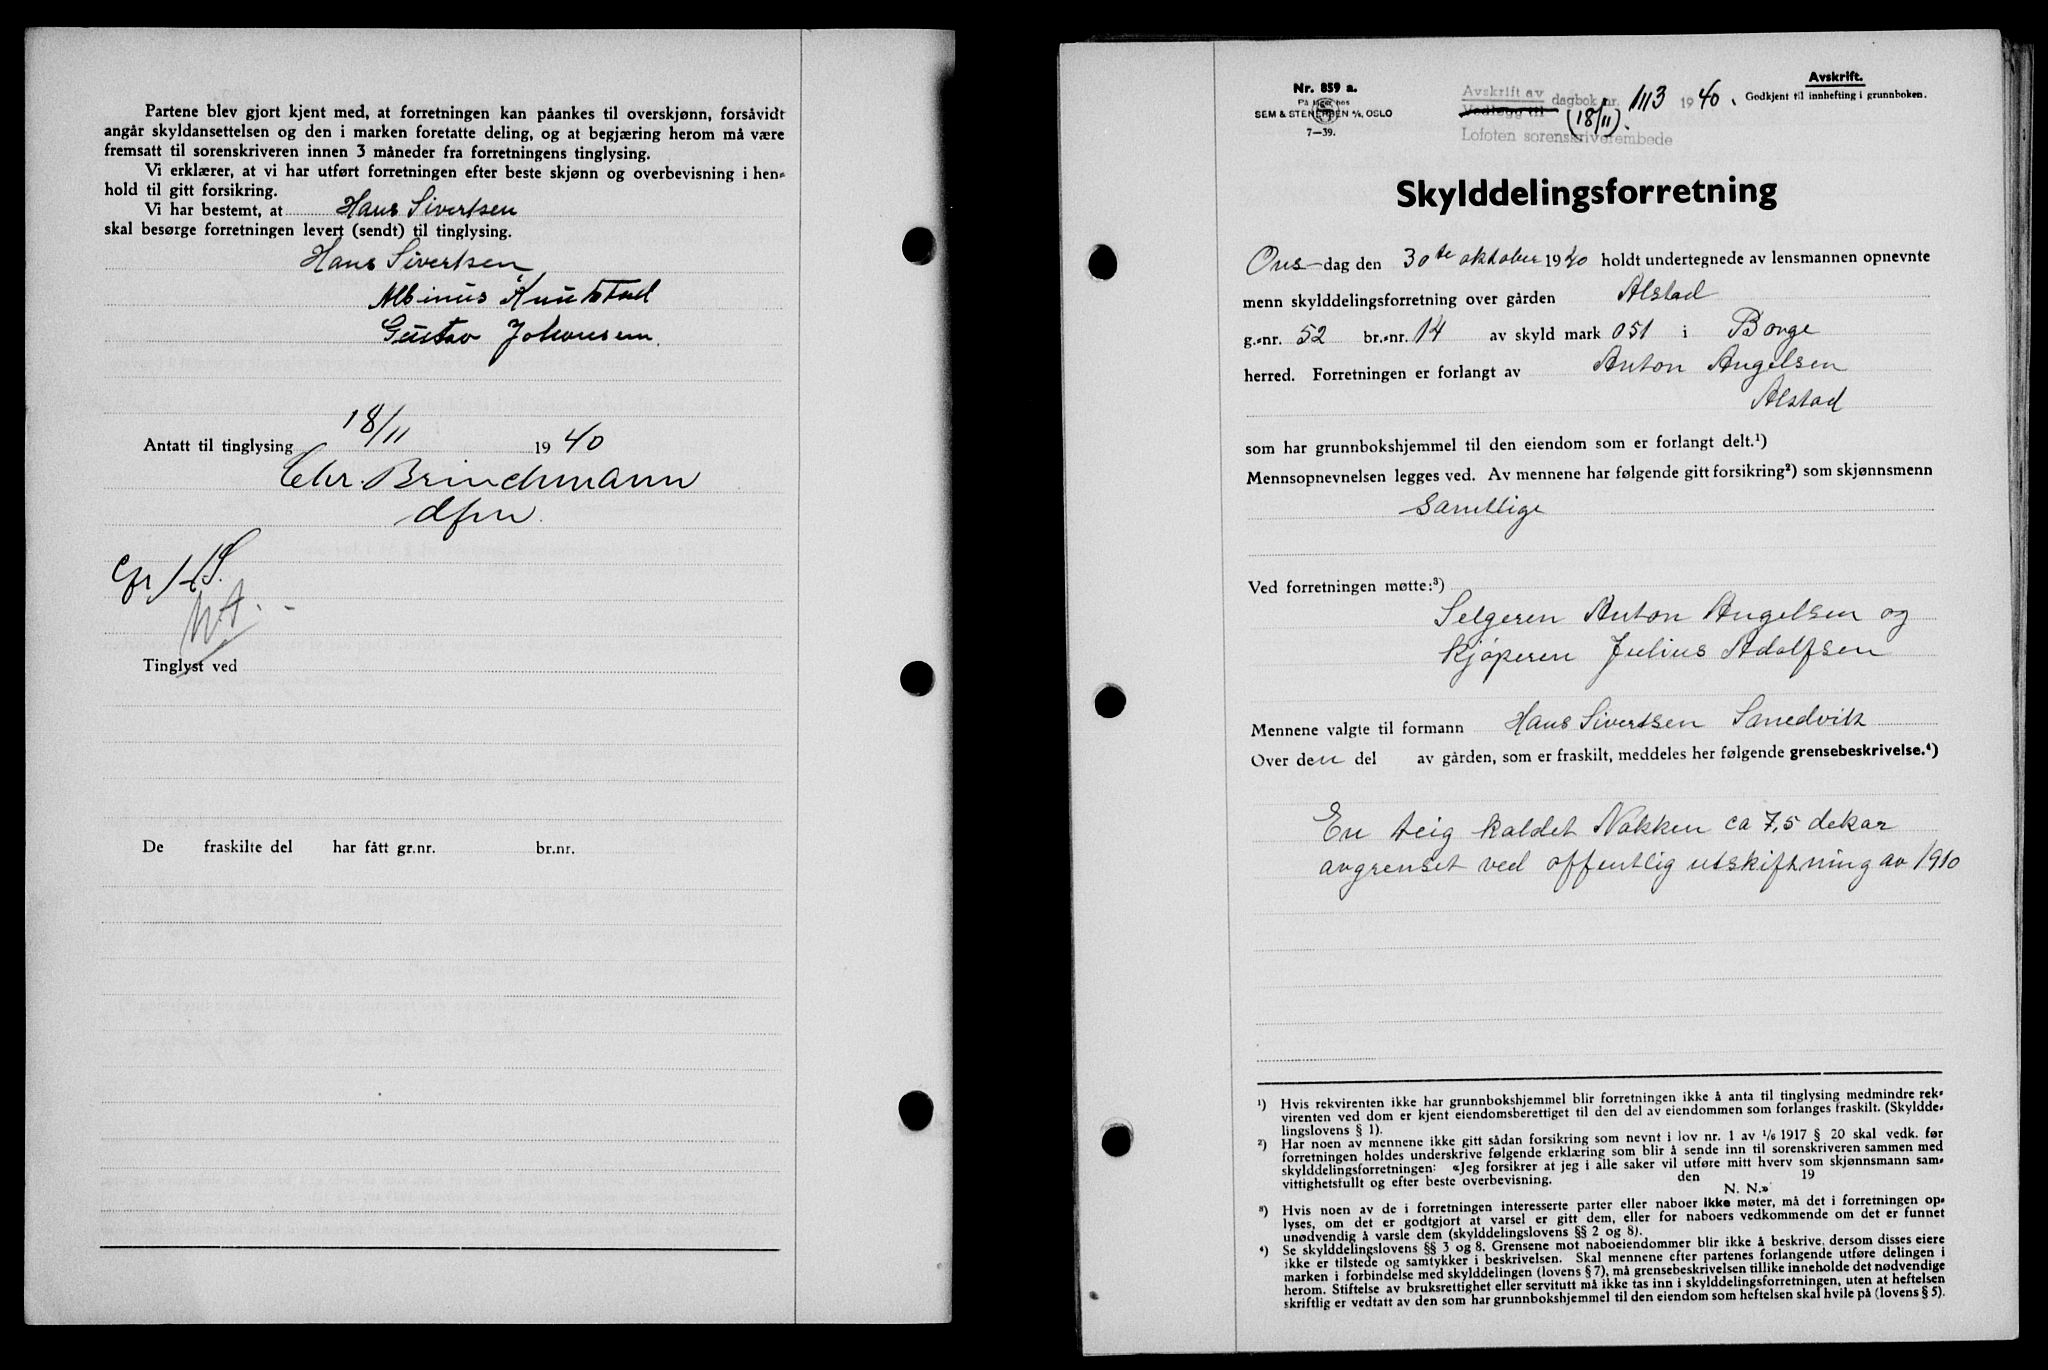 Partene blev gjort kjent med, at forretningen kan påankes til overskjønn, forsåvidt
angår skyldansettelsen og den i marken foretatte deling, og at begjæring herom må være
fremsatt til sorenskriveren innen 3 måneder fra forretningens tinglysing.
Vi erklærer, at vi har utført forretningen efter beste skjønn og overbevisning i hen-
hold til gitt forsikring.
Vi har bestemt, at Hans Sivertsen
skal besørge forretningen levert (sendt) til tinglysing.
Hans Sivertsen
Albinus Knutstad
Gustav Johansen.
Antatt til tinglysing 18/11 1940
Chr. Brinchmann
dfm.
Tinglyst ved
De fraskilte del har fått gr.nr. br.nr.
Nr. 859 a.
På lager hos
SEM & STENERSEN A/S, OSLO
7—39.
Avskrift av
Vedlegg til dagbok nr. 1113 1940.
(18/11).
Lofoten sorenskriverembede
Avskrift.
Godkjent til innhefting i grunnboken.
Skylddelingsforretning
Ons-dag den 30te oktober 1940 holdt undertegnede av lensmannen opnevnte
menn skylddelingsforretning over gården Alstad
g.-nr. 52 br.-nr. 14 av skyld mark 051 i Borge
herred. Forretningen er forlangt av Anton Angelsen
Alstad
som har grunnbokshjemmel til den eiendom som er forlangt delt.¹)
Mennsopnevnelsen legges ved. Av mennene har følgende gitt forsikring²) som skjønnsmenn
Samtlige
Ved forretningen møtte:³)
Selgeren Anton Angelsen og
kjøperen Julius Adolfsen
Mennene valgte til formann Hans Sivertsen Sanedvik
Over den del av gården, som er fraskilt, meddeles her følgende grensebeskrivelse.⁴)
En teig kaldet Nakken ca 7,5 dekar
avgrenset ved offentlig utskiftning av 1910
¹) Hvis rekvirenten ikke har grunnbokshjemmel blir forretningen ikke å anta til tinglysing medmindre rek-
virenten ved dom er kjent eiendomsberettiget til den del av eiendommen som forlanges fraskilt. (Skyldde-
lingslovens § 1).
²) Har noen av mennene ikke gitt sådan forsikring som nevnt i lov nr. 1 av 1/6 1917 § 20 skal vedk. før
forretningen holdes underskrive følgende erklæring som blir å sende inn til sorenskriveren sammen med
skylddelingsforretningen: «Jeg forsikrer at jeg i alle saker vil utføre mitt hverv som skjønnsmann sam-
vittighetsfullt og efter beste overbevisning. den 19
N. N.»
³) Hvis noen av de i forretningen interesserte parter eller naboer ikke møter, må det i forretningen op-
lyses, om det er godtgjort at varsel er gitt dem, eller for naboers vedkommende om det er funnet
unødvendig å varsle dem (skylddelingslovens §§ 2 og 8).
⁴) Se skylddelingslovens §§ 3 og 8. Grensene mot naboeiendommer blir ikke å beskrive, dersom disses eiere
ikke er tilstede og samtykker i beskrivelsen. Skal mennene efter partenes forlangende utføre delingen i
marken i forbindelse med skylddelingen (lovens § 7), må grensebeskrivelsen tillike inneholde det nødvendige
herom. Stiftelse av bruksrettighet eller servitutt må ikke tas inn i skylddelingsforretningen, uten at heftelsen
skriftlig er vedtatt av den som har grunnbokshjemmel til den eiendom som heftelsen skal hvile på (lovens § 5).